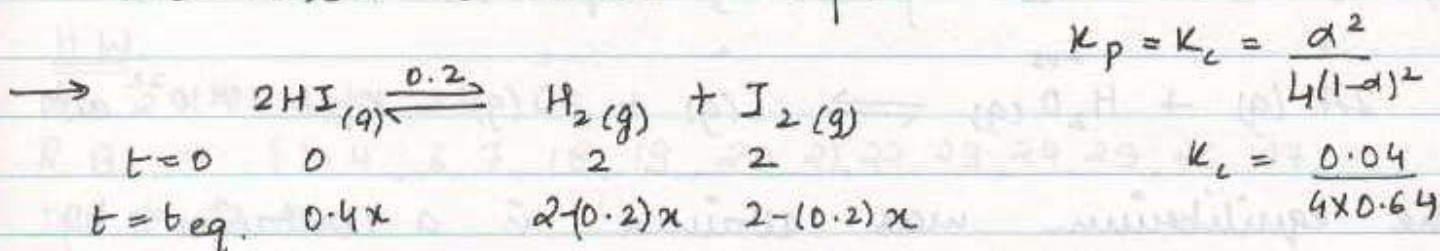 Kp = Kc = α² / 4(1-α)²
→ 2HI(g) ⇌ 0.2 H₂(g) + I₂(g)
t=0 0 2 2 Kc = 0.04 / 4×0.64
t = teq. 0.4x 2-(0.2)x 2-(0.2)x